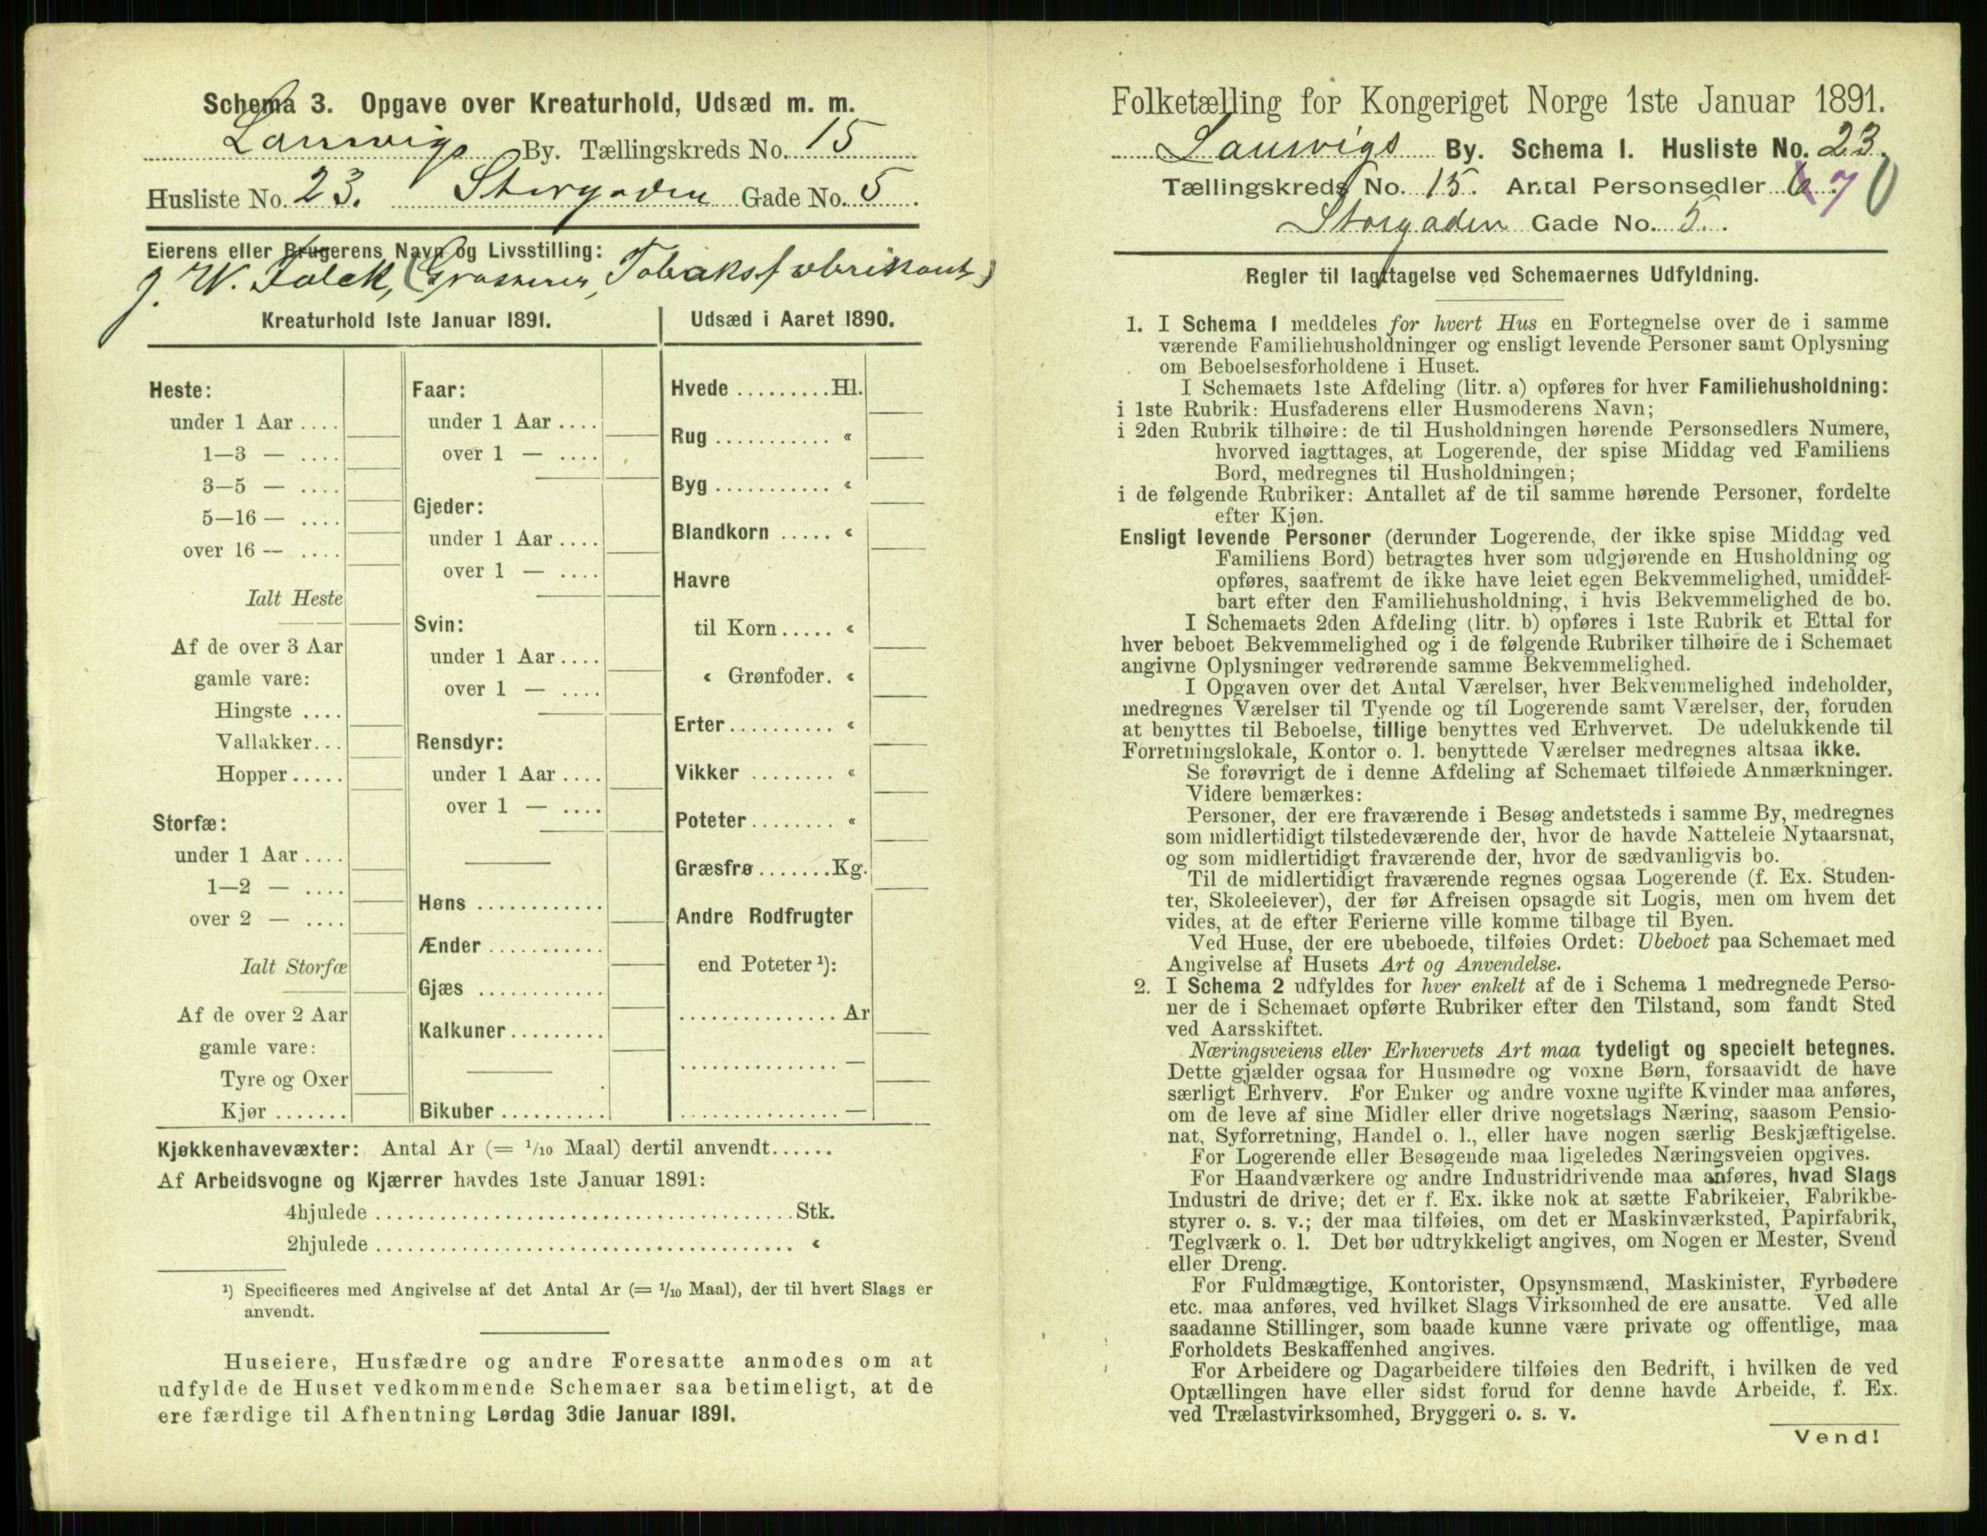 Schema 3. Opgave over Kreaturhold, Udsæd m. m.
Laurvigs By. Tællingskreds No. 15
Husliste No. 23. Storgaden Gade No. 5.
Eierens eller Brugerens Navn og Livsstilling:
J. W. Falck, Tobaksfabrikant)
Kreaturhold 1ste Januar 1891.
Heste:
under 1 Aar ....
1—3 — ....
3—5 — ....
5—16 — ....
over 16 — ....
Ialt Heste
Af de over 3 Aar
gamle vare:
Hingste ....
Vallakker...
Hopper.....
Storfæ:
under 1 Aar ....
1—2 — ....
over 2 — ....
Ialt Storfæ
Af de over 2 Aar
gamle vare:
Tyre og Oxer
Kjør .......
Faar:
under 1 Aar ....
over 1 — ....
Gjeder:
under 1 Aar ....
over 1 — ....
Svin:
under 1 Aar ....
over 1 — ....
Rensdyr:
under 1 Aar ....
over 1 — ....
Høns ............
Ænder ...........
Gjæs ............
Kalkuner.........
Bikuber ..........
Udsæd i Aaret 1890.
Hvede .........Hl.
Rug ........... «
Byg ........... «
Blandkorn ..... «
Havre
til Korn ..... «
« Grønfoder. «
Erter .......... «
Vikker ........ «
Poteter ........ «
Græsfrø .......Kg.
Andre Rodfrugter
end Poteter ¹):
............... Ar
............... —
............... —
Kjøkkenhavevæxter: Antal Ar (= 1/10 Maal) dertil anvendt......
Af Arbeidsvogne og Kjærrer havdes 1ste Januar 1891:
4hjulede ........................................Stk.
2hjulede ........................................ «
¹) Specificeres med Angivelse af det Antal Ar (= 1/10 Maal), der til hvert Slags er
anvendt.
Huseiere, Husfædre og andre Foresatte anmodes om at
udfylde de Huset vedkommende Schemaer saa betimeligt, at de
ere færdige til Afhentning Lørdag 3die Januar 1891.
Folketælling for Kongeriget Norge 1ste Januar 1891.
Laurvigs By. Schema 1. Husliste No. 23.
Tællingskreds No. 15. Antal Personsedler 6 7
Storgaden Gade No. 5.
Regler til Iagttagelse ved Schemaernes Udfyldning.
1. I Schema 1 meddeles for hvert Hus en Fortegnelse over de i samme
værende Familiehusholdninger og ensligt levende Personer samt Oplysning
om Beboelsesforholdene i Huset.
I Schemaets 1ste Afdeling (litr. a) opføres for hver Familiehusholdning:
i 1ste Rubrik: Husfaderens eller Husmoderens Navn;
i 2den Rubrik tilhøire: de til Husholdningen hørende Personsedlers Numere,
hvorved iagttages, at Logerende, der spise Middag ved Familiens
Bord, medregnes til Husholdningen;
i de følgende Rubriker: Antallet af de til samme hørende Personer, fordelte
efter Kjøn.
Ensligt levende Personer (derunder Logerende, der ikke spise Middag ved
Familiens Bord) betragtes hver som udgjørende en Husholdning og
opføres, saafremt de ikke have leiet egen Bekvemmelighed, umiddel-
bart efter den Familiehusholdning, i hvis Bekvemmelighed de bo.
I Schemaets 2den Afdeling (litr. b) opføres i 1ste Rubrik et Ettal for
hver beboet Bekvemmelighed og i de følgende Rubriker tilhøire de i Schemaet
angivne Oplysninger vedrørende samme Bekvemmelighed.
I Opgaven over det Antal Værelser, hver Bekvemmelighed indeholder,
medregnes Værelser til Tyende og til Logerende samt Værelser, der, foruden
at benyttes til Beboelse, tillige benyttes ved Erhvervet. De udelukkende til
Forretningslokale, Kontor o. l. benyttede Værelser medregnes altsaa ikke.
Se forøvrigt de i denne Afdeling af Schemaet tilføiede Anmærkninger.
Videre bemærkes:
Personer, der ere fraværende i Besøg andetsteds i samme By, medregnes
som midlertidigt tilstedeværende der, hvor de havde Natteleie Nytaarsnat,
og som midlertidigt fraværende der, hvor de sædvanligvis bo.
Til de midlertidigt fraværende regnes ogsaa Logerende (f. Ex. Studen-
ter, Skoleelever), der før Afreisen opsagde sit Logis, men om hvem det
vides, at de efter Ferierne ville komme tilbage til Byen.
Ved Huse, der ere ubeboede, tilføies Ordet: Ubeboet paa Schemaet med
Angivelse af Husets Art og Anvendelse.
2. I Schema 2 udfyldes for hver enkelt af de i Schema 1 medregnede Perso-
ner de i Schemaet opførte Rubriker efter den Tilstand, som fandt Sted
ved Aarsskiftet.
Næringsveiens eller Erhvervets Art maa tydeligt og specielt betegnes.
Dette gjælder ogsaa for Husmødre og voxne Børn, forsaavidt de have
særligt Erhverv. For Enker og andre voxne ugifte Kvinder maa anføres,
om de leve af sine Midler eller drive nogetslags Næring, saasom Pensio-
nat, Syforretning, Handel o. l., eller have nogen særlig Beskjæftigelse.
For Logerende eller Besøgende maa ligeledes Næringsveien opgives.
For Haandværkere og andre Industridrivende maa anføres, hvad Slags
Industri de drive; det er f. Ex. ikke nok at sætte Fabrikeier, Fabrikbe-
styrer o. s. v.; der maa tilføies, om det er Maskinværksted, Papirfabrik,
Teglværk o. l. Det bør udtrykkeligt angives, om Nogen er Mester, Svend
eller Dreng.
For Fuldmægtige, Kontorister, Opsynsmænd, Maskinister, Fyrbødere
etc. maa anføres, ved hvilket Slags Virksomhed de ere ansatte. Ved alle
saadanne Stillinger, som baade kunne være private og offentlige, maa
Forholdets Beskaffenhed angives.
For Arbeidere og Dagarbeidere tilføies den Bedrift, i hvilken de ved
Optællingen have eller sidst forud for denne havde Arbeide, f. Ex.
ved Trælastvirksomhed, Bryggeri o. s. v.
Vend!